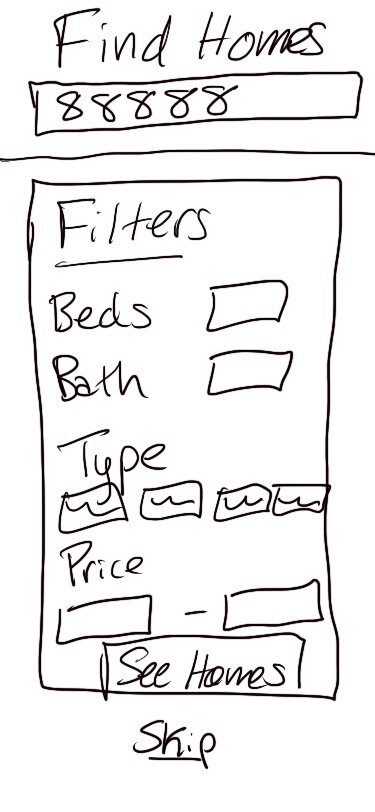 Find Homes
88888
Filters
Beds
Bath
Type
Price
-
See Homes
Skip